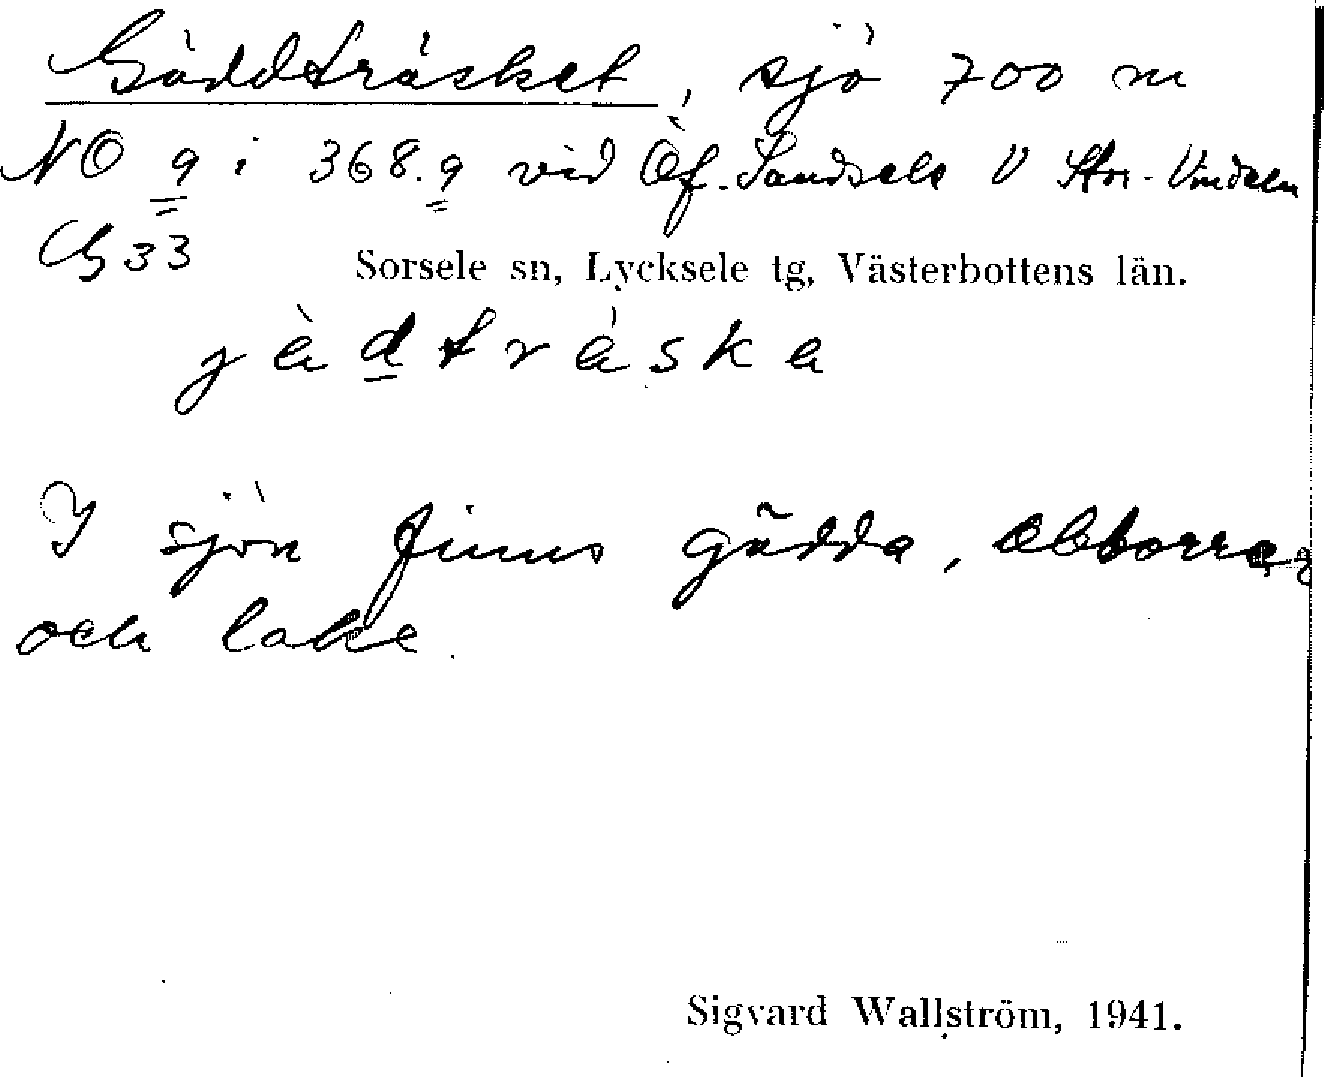 Gäddträsket, sjö 700 m
NO 9 i 368.9 vid Öf. Sandsele V Stor-Vindeln
G 33
Sorsele sn, Lycksele tg, Västerbottens län.
jàdtráska
I sjön finns gädda, abborrar
och lake.
Sigvard Wallström, 1941.